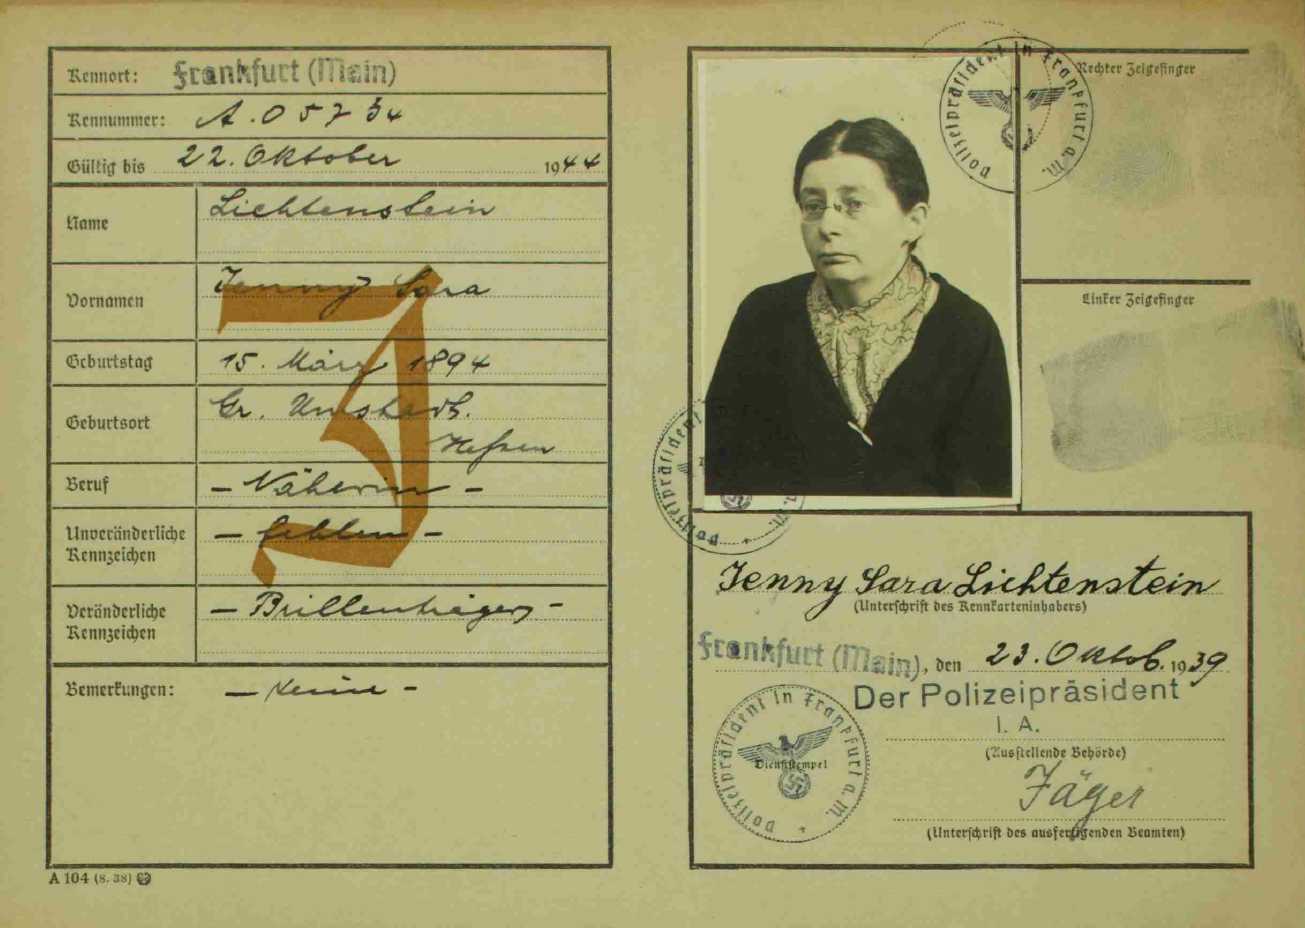 Kennort: Frankfurt (Main)
Kennummer: A.05754
Gültig bis 22. Oktober 1944
Name Lichtenstein
Vornamen Jenny Sara
J
Geburtstag 15. März 1894
Geburtsort Gr. Umstadt.
Hessen
Beruf - Näherin -
Unveränderliche Kennzeichen - fehlen -
Veränderliche Kennzeichen - Brillenträgerin -
Bemerkungen: - keine -
A 104 (8. 38)
Polizeipräsident in Frankfurt a. M.
Rechter Zeigefinger
Linker Zeigefinger
Polizeipräsident
a. M.
Jenny Sara Lichtenstein
(Unterschrift des Kennkarteninhabers)
Frankfurt (Main), den 23. Oktob. 1939
Der Polizeipräsident
I. A.
(Ausstellende Behörde)
Polizeipräsident in Frankfurt a. M.
Dienststempel
Jäger
(Unterschrift des ausfertigenden Beamten)